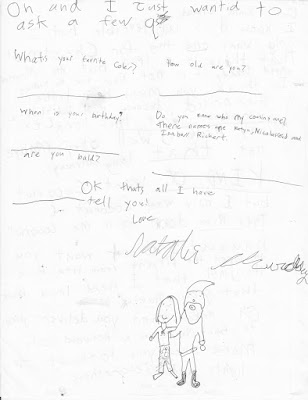 Oh and I Just wantid to
ask a few q
What's your favrite Coler?
How old are you?
When is your birthday?
Do you know who my cousins are?
There names are Robyn, Nicola and
Isabell
are you bald?
OK thats all I have
tell you!
Love
Natalie